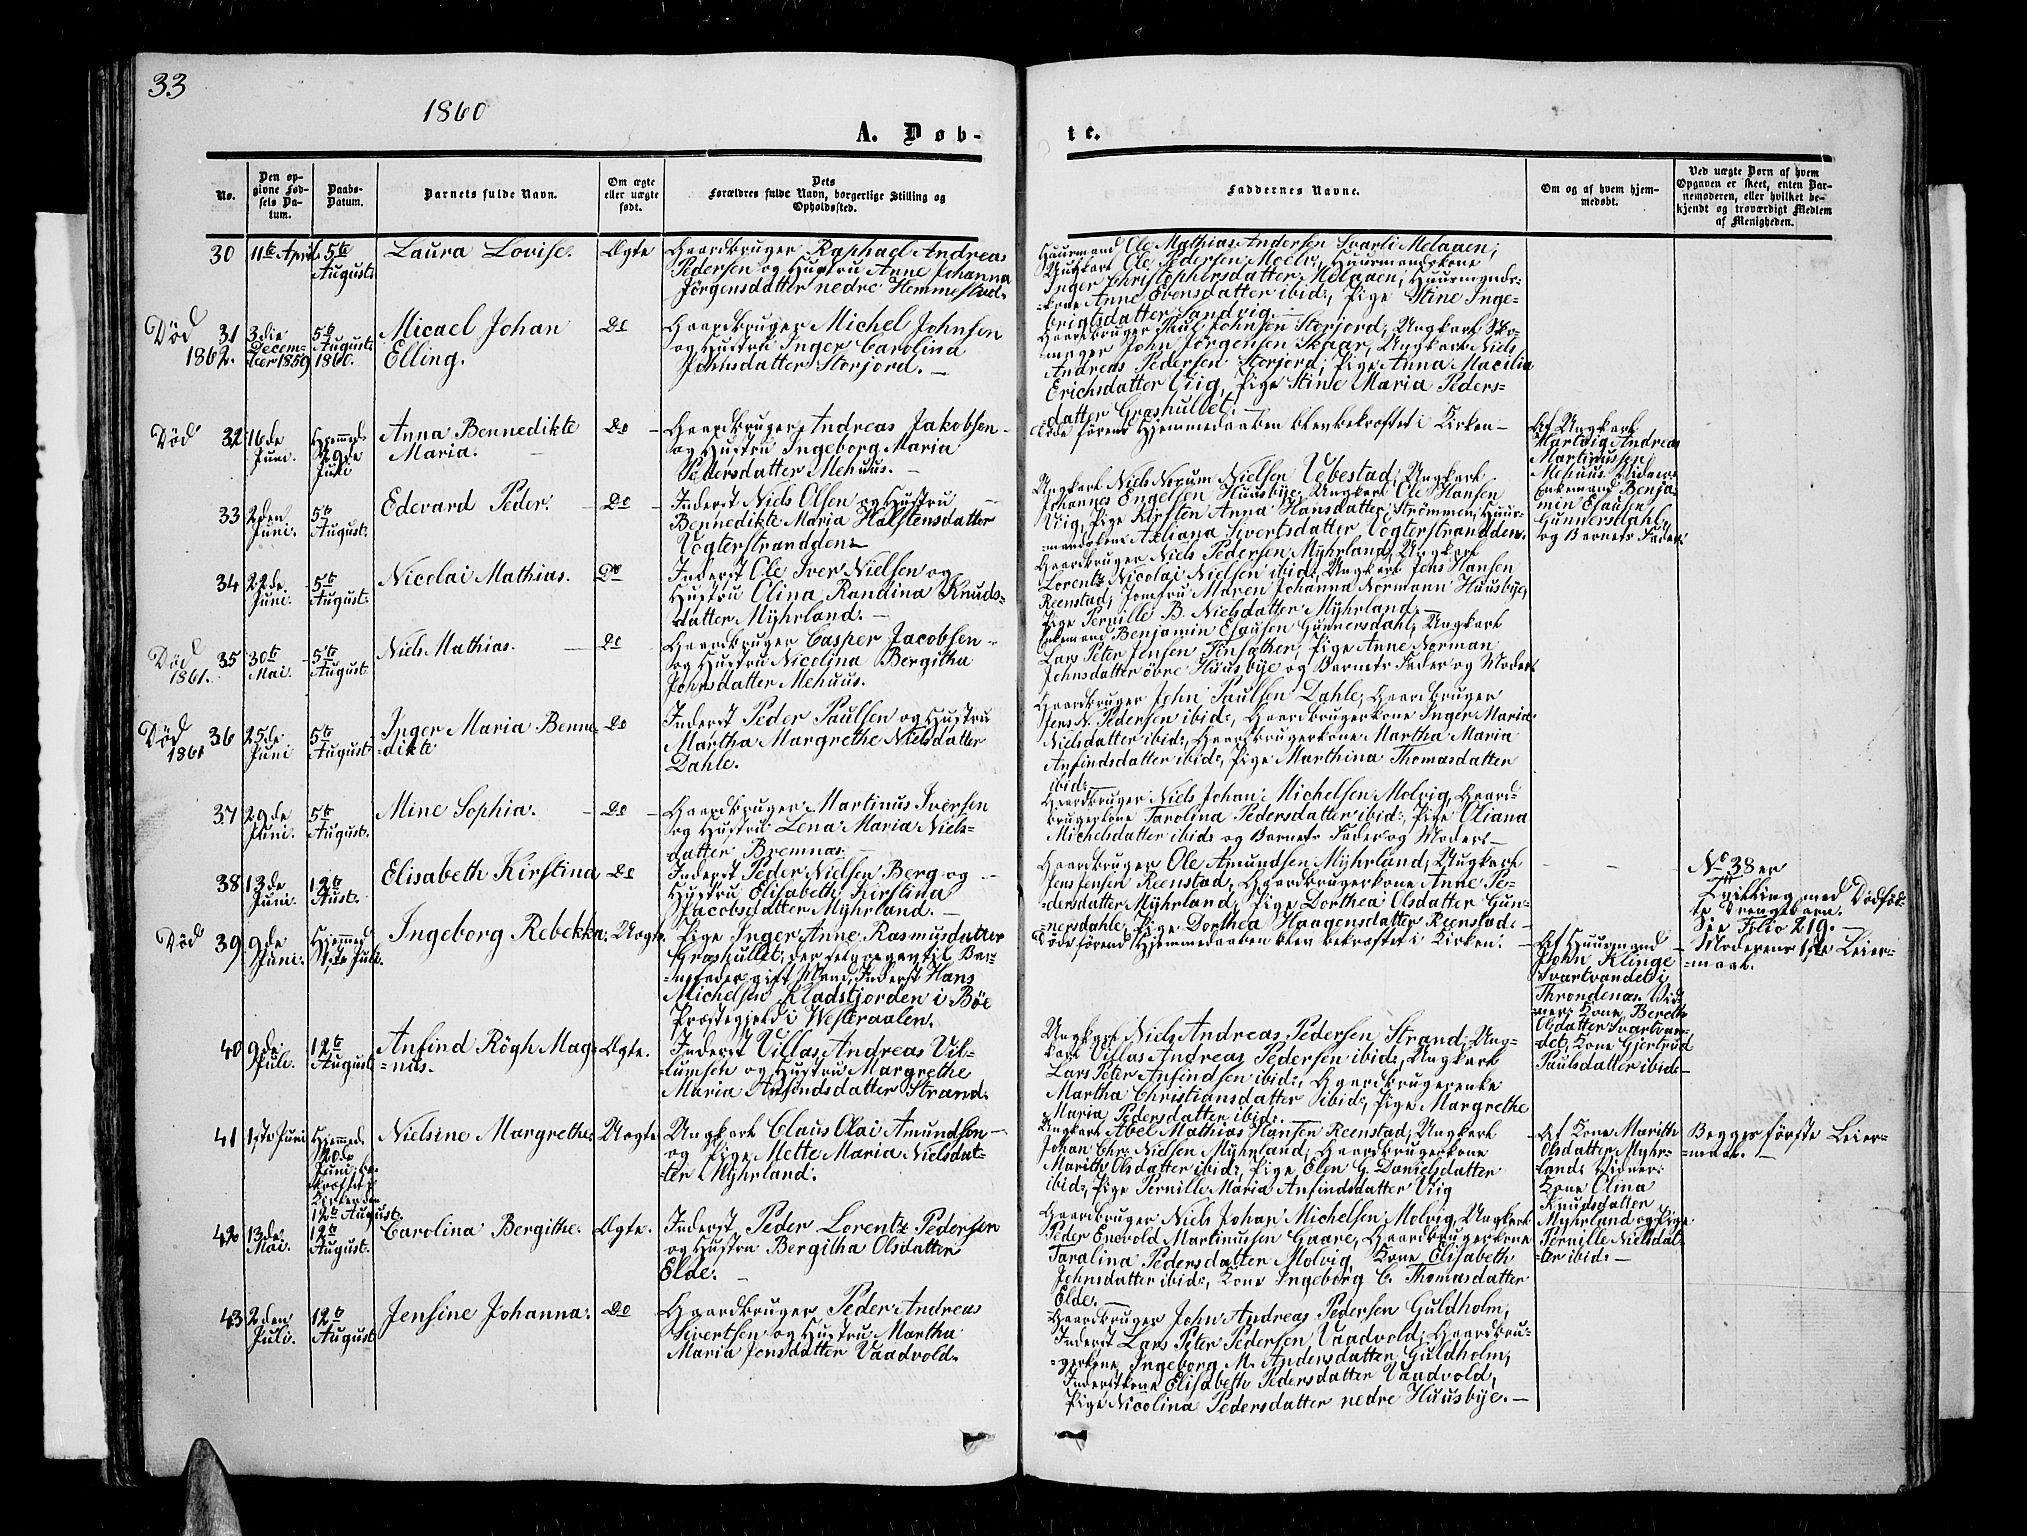 33
1860
A. Døb-
te.
No.
Den op-
givne Fød-
sels Da-
tum.
Daabs-
Datum.
Barnets fulde Navn.
Om ægte
eller uægte
født.
Dets
Forældres fulde Navn, borgerlige Stilling og
Opholdssted.
Faddernes Navne.
Om og af hvem hjem-
medøbt.
Ved uægte Børn af hvem
Opgaven er skeet, enten Bar-
nemoderen, eller hvilket be-
kjendt og troværdigt Medlem
af Menigheden.
30 11te April 5te
August.
Laura Lovise.
Ægte
Gaardbruger Raphael Andreas
Pedersen og Hustru Anne Johanna
Jörgensdatter nedre Hemmestad.
Huusmand Ole Mathias Andersen Svarli Melaaen;
Ungkarl Ole Pedersen Moelv, Huusmandskone
Inger Christophersdatter Melaaen, Huusmands-
-kone Anne Evensdatter ibid:, Pige Stine Inge-
brigtsdatter Sandvig.
Död
1862.
31 3die
Decem-
ber 1859
5te
August
1860.
Micael Johan
Elling.
Do
Gaardbruger Michel Johnsen
og Hustru Inger Carolina
Johnsdatter Storjord. —
Gaardbruger Paul Johnsen Storjord, Ungkarl Sko-
mager John Jörgensen Skaar, Ungkarl Niels
Andreas Pedersen Storjord, Pige Anna Macilia
Erichsdatter Viig, Pige Stine Maria Peders-
datter Grashullet. —
Död
32 16de
Juni.
Hjemmed.
29de
Juni
Anna Bennedikte
Maria. —
Do
Gaardbruger Andreas Jakobsen
og Hustru Ingeborg Maria
Pedersdatter Mehuus. —
Döde förend Hjemmedaaben blev bekræftet i Kirken —
Af Ungkarl
Hartvig Andreas
Martinussen
Mehuus. Vidner:
Enkemand Benja-
min Esausen
Gunnersdahl,
og Barnets Fader.
33 2den
Juni.
5te
August.
Edevard Peder.
Do
Inderst Niels Olsen og Hustru
Bennedikte Maria Halstensdatter
Vogterstrandden.
Ungkarl Niels Norum Nielsen Vebestad, Ungkarl
Johannes Engelsen Huusbye, Ungkarl Ole Hansen
Viig, Pige Kirsten Anna Hansdatter Strömmen, Huus-
-mandskone Axliana Sivertsdatter Vogterstrandden.
34 22de
Juni.
5te
August.
Nicolai Mathias.
Do
Inderst Ole Iver Nielsen og
Hustru Olina Randina Knuds-
datter Myhrland. —
Gaardbruger Niels Pedersen Myhrland, Ungkarl
Lorentz Nicolai Nielsen ibid:, Ungkarl Jens Hansen
Reenstad, Jomfru Maren Johanna Normann Huusbye,
Pige Pernille B. Nielsdatter Myhrland. —
Död
1861.
35 30te
Mai.
5te
August
Niels Mathias.
Do
Gaardbruger Casper Jacobsen
og Hustru Nicolina Bergitha
Johnsdatter Mehuus.
Enkemand Benjamin Esausen Gunnersdahl, Ungkarl
Lars Peter Jensen Finsæther, Pige Anne Norman
Johnsdatter övre Huusbye og Barnets Fader og Moder.
Död
1861
36 25de
Juni
5te
August
Inger Maria Benne-
-dikte
Do
Inderst Peder Paulsen og Hustru
Martha Margrethe Nielsdatter
Dahle.
Gaardbruger John Paulsen Dahle, Gaardbruger
Jens N. Pedersen ibid:, Gaardbrugerkone Inger Maria
Nielsdatter ibid:, Gaardbrugerkone Martha Maria
Anfindsdatter ibid:, Pige Marthina Thomasdatter
ibid:
37 29de
Juni.
5te
August.
Mine Sophia.
Do
Gaardbruger Martinus Iversen
og Hustru Lena Maria Niels-
datter Bremnæs. —
Gaardbruger Niels Johan Michelsen Molvig, Gaard-
brugerkone Taralina Pedersdatter ibid:, Pige Oliana
Michelsdatter ibid: og Barnets Fader og Moder. —
38 13de
Juni.
12te
Aust.
Elisabeth Kirstina
Do
Inderst Peder Nielsen Berg og
Hustru Elisabeth Kirstina
Jacobsdatter Myhrland. —
Gaardbruger Ole Amundsen Myhrland, Ungkarl
Jens Jensen Reenstad, Gaardbrugerkone Anne Pe-
dersdatter Myhrland, Pige Dorthea Olsdatter Gun-
nersdahle, Pige Dorthea Haagensdatter Reenstad.
No 38 er
Tvilling med Dödföd-
te Drengebarn.
See Folio 219. —
Död
39 9de
Juni.
Hjemmed.
1ste Juli.
Ingeborg Rebekka.
Uægte.
Pige Inger Anne Rasmusdatter
Grashullet, der selv opgav til Bar-
nefader gift Mand, Inderst Hans
Michelsen Kladstjorden i Böe
Præstegjeld i Westeraalen.
Döde förend Hjemmedaaben blev bekræftet i Kirken.
Af Huusmand
John Klinge
Svartvandet i
Throndenæs. Vid-
ner: Kone Bereth
Olsdatter Svartvan-
det, Kone Gjertrud
Paulsdatter ibid: —
Moderens 1ste Leier-
-maal.
40 9de
Juli.
12te
August.
Anfind Rögh Mag-
-nus.
Ægte.
Inderst Villas Andreas Vil-
lumsen og Hustru Margrethe
Maria Anfindsdatter Strand.
Ungkarl Niels Andreas Pedersen Strand, Ung-
karl Villas Andreas Pedersen ibid:, Ungkarl
Lars Peter Anfindsen ibid:, Gaardbrugerenke
Martha Christiansdatter ibid:, Pige Margrethe
Maria Pedersdatter ibid:
41 1ste Juni
Hjemmed.
20de
Juni, be-
kræftet i
Kirken den
12te August.
Nielsine Margrethe.
Uægte
Ungkarl Claus Olai Amundsen
og Pige Mette Maria Nielsdat-
-ter Myhrland.
Ungkarl Abel Mathias Hansen Reenstad, Ungkarl
Johan Chr. Nielsen Myhrland, Gaardbrugerkone
Marith Olsdatter ibid:, Pige Elen G. Danielsdatter
ibid:, Pige Pernille Maria Anfindsdatter Viig
Af Kone Marith
Olsdatter Myhr-
land. Vidner:
Kone Olina
Knudsdatter
Myhrland og Pige
Pernille Nielsdat-
-ter ibid: —
Begges förste Leier-
-maal. —
42 13de
Mai.
12te
August.
Carolina Bergithe.
Ægte.
Inderst Peder Lorentz Pedersen
og Hustru Bergitha Olsdatter
Elde. —
Gaardbruger Niels Johan Michelsen Molvig, Ungkarl
Peder Enevold Martinussen Gaare, Gaardbrugerkone
Taralina Pedersdatter Molvig, Kone Elisabeth
Johnsdatter ibid:, Kone Ingeborg C. Thomasdatter
Elde. —
43 2den
Juli.
12te
August
Jensine Johanna.
Do
Gaardbruger Peder Andreas
Sivertsen og Hustru Martha
Maria Jensdatter Vaadvold.
Gaardbruger John Andreas Pedersen Guldholm,
Inderst Lars Peter Pedersen Vaadvold, Gaardbru-
-gerkone Ingeborg M. Andersdatter Guldholm,
Inderstkone Elisabeth Pedersdatter Vaadvold,
Pige Nicolina Pedersdatter nedre Huusbye. —